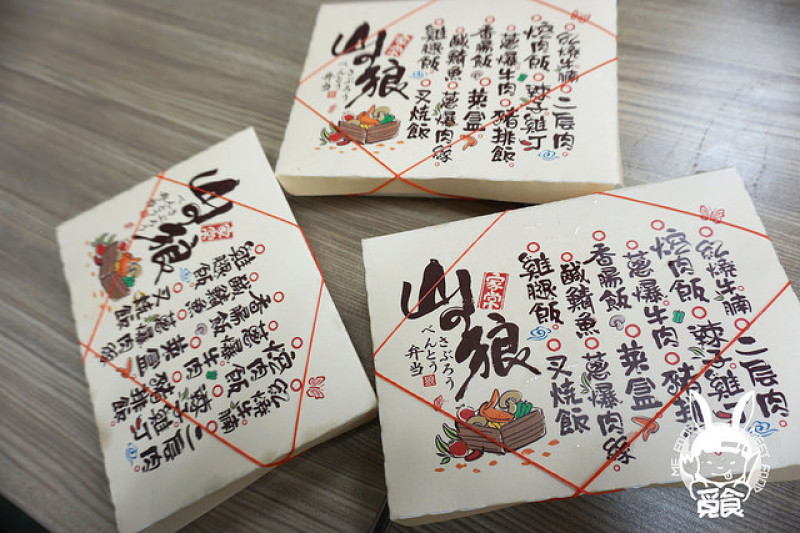 紅燒牛腩 二层肉
焢肉飯 辣子雞丁
蔥爆牛肉 豬排飯
香腸飯 菜盒
鹹鯖魚 蔥爆肉絲
雞腿飯 叉燒飯
家常
山の狼
さぶろう
べんとう
弁当
紅燒牛腩 二层肉
焢肉飯 辣子雞丁
蔥爆牛肉 豬排飯
香腸飯 菜盒
鹹鯖魚 蔥爆肉絲
雞腿飯 叉燒飯
家常
山の狼
さぶろう
べんとう
弁当
紅燒牛腩 二层肉
焢肉飯 辣子雞丁
蔥爆牛肉 豬排
香腸飯 菜盒
鹹鯖魚 蔥爆肉絲
雞腿飯 叉燒飯
家常
山の狼
さぶろう
べんとう
弁当
覓食